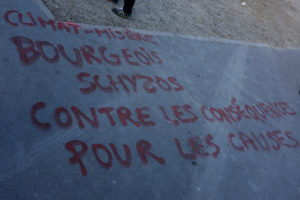 CLIMAT-MISÈRE
BOURGEOIS
SCHYZOS
CONTRE LES CONSÉQUENCES
POUR LES CAUSES